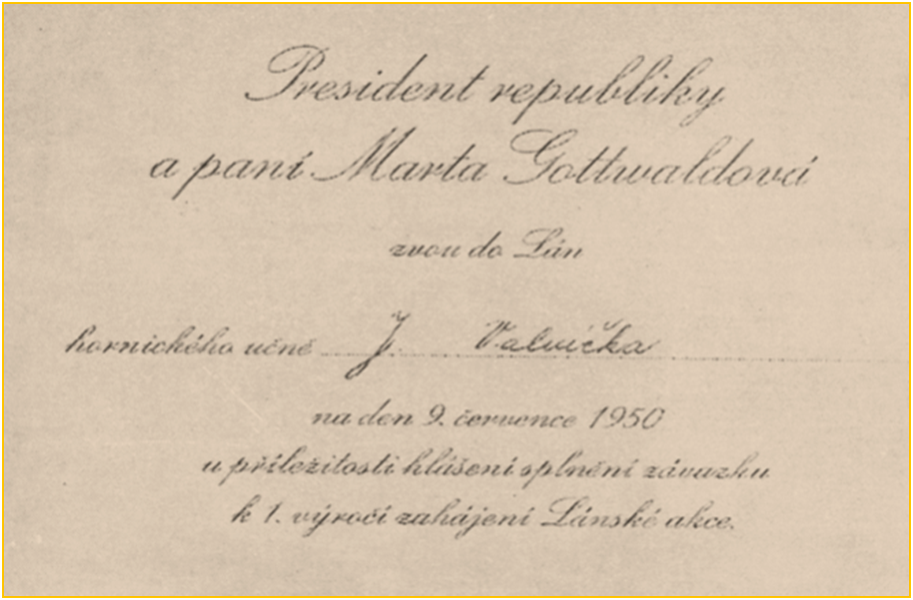 President republiky
a paní Marta Gottwaldová
zvou do Lán
hornického učně J. Valvička
na den 9. července 1950
u příležitosti hlášení splnění závazku
k 1. výročí zahájení Lánské akce.